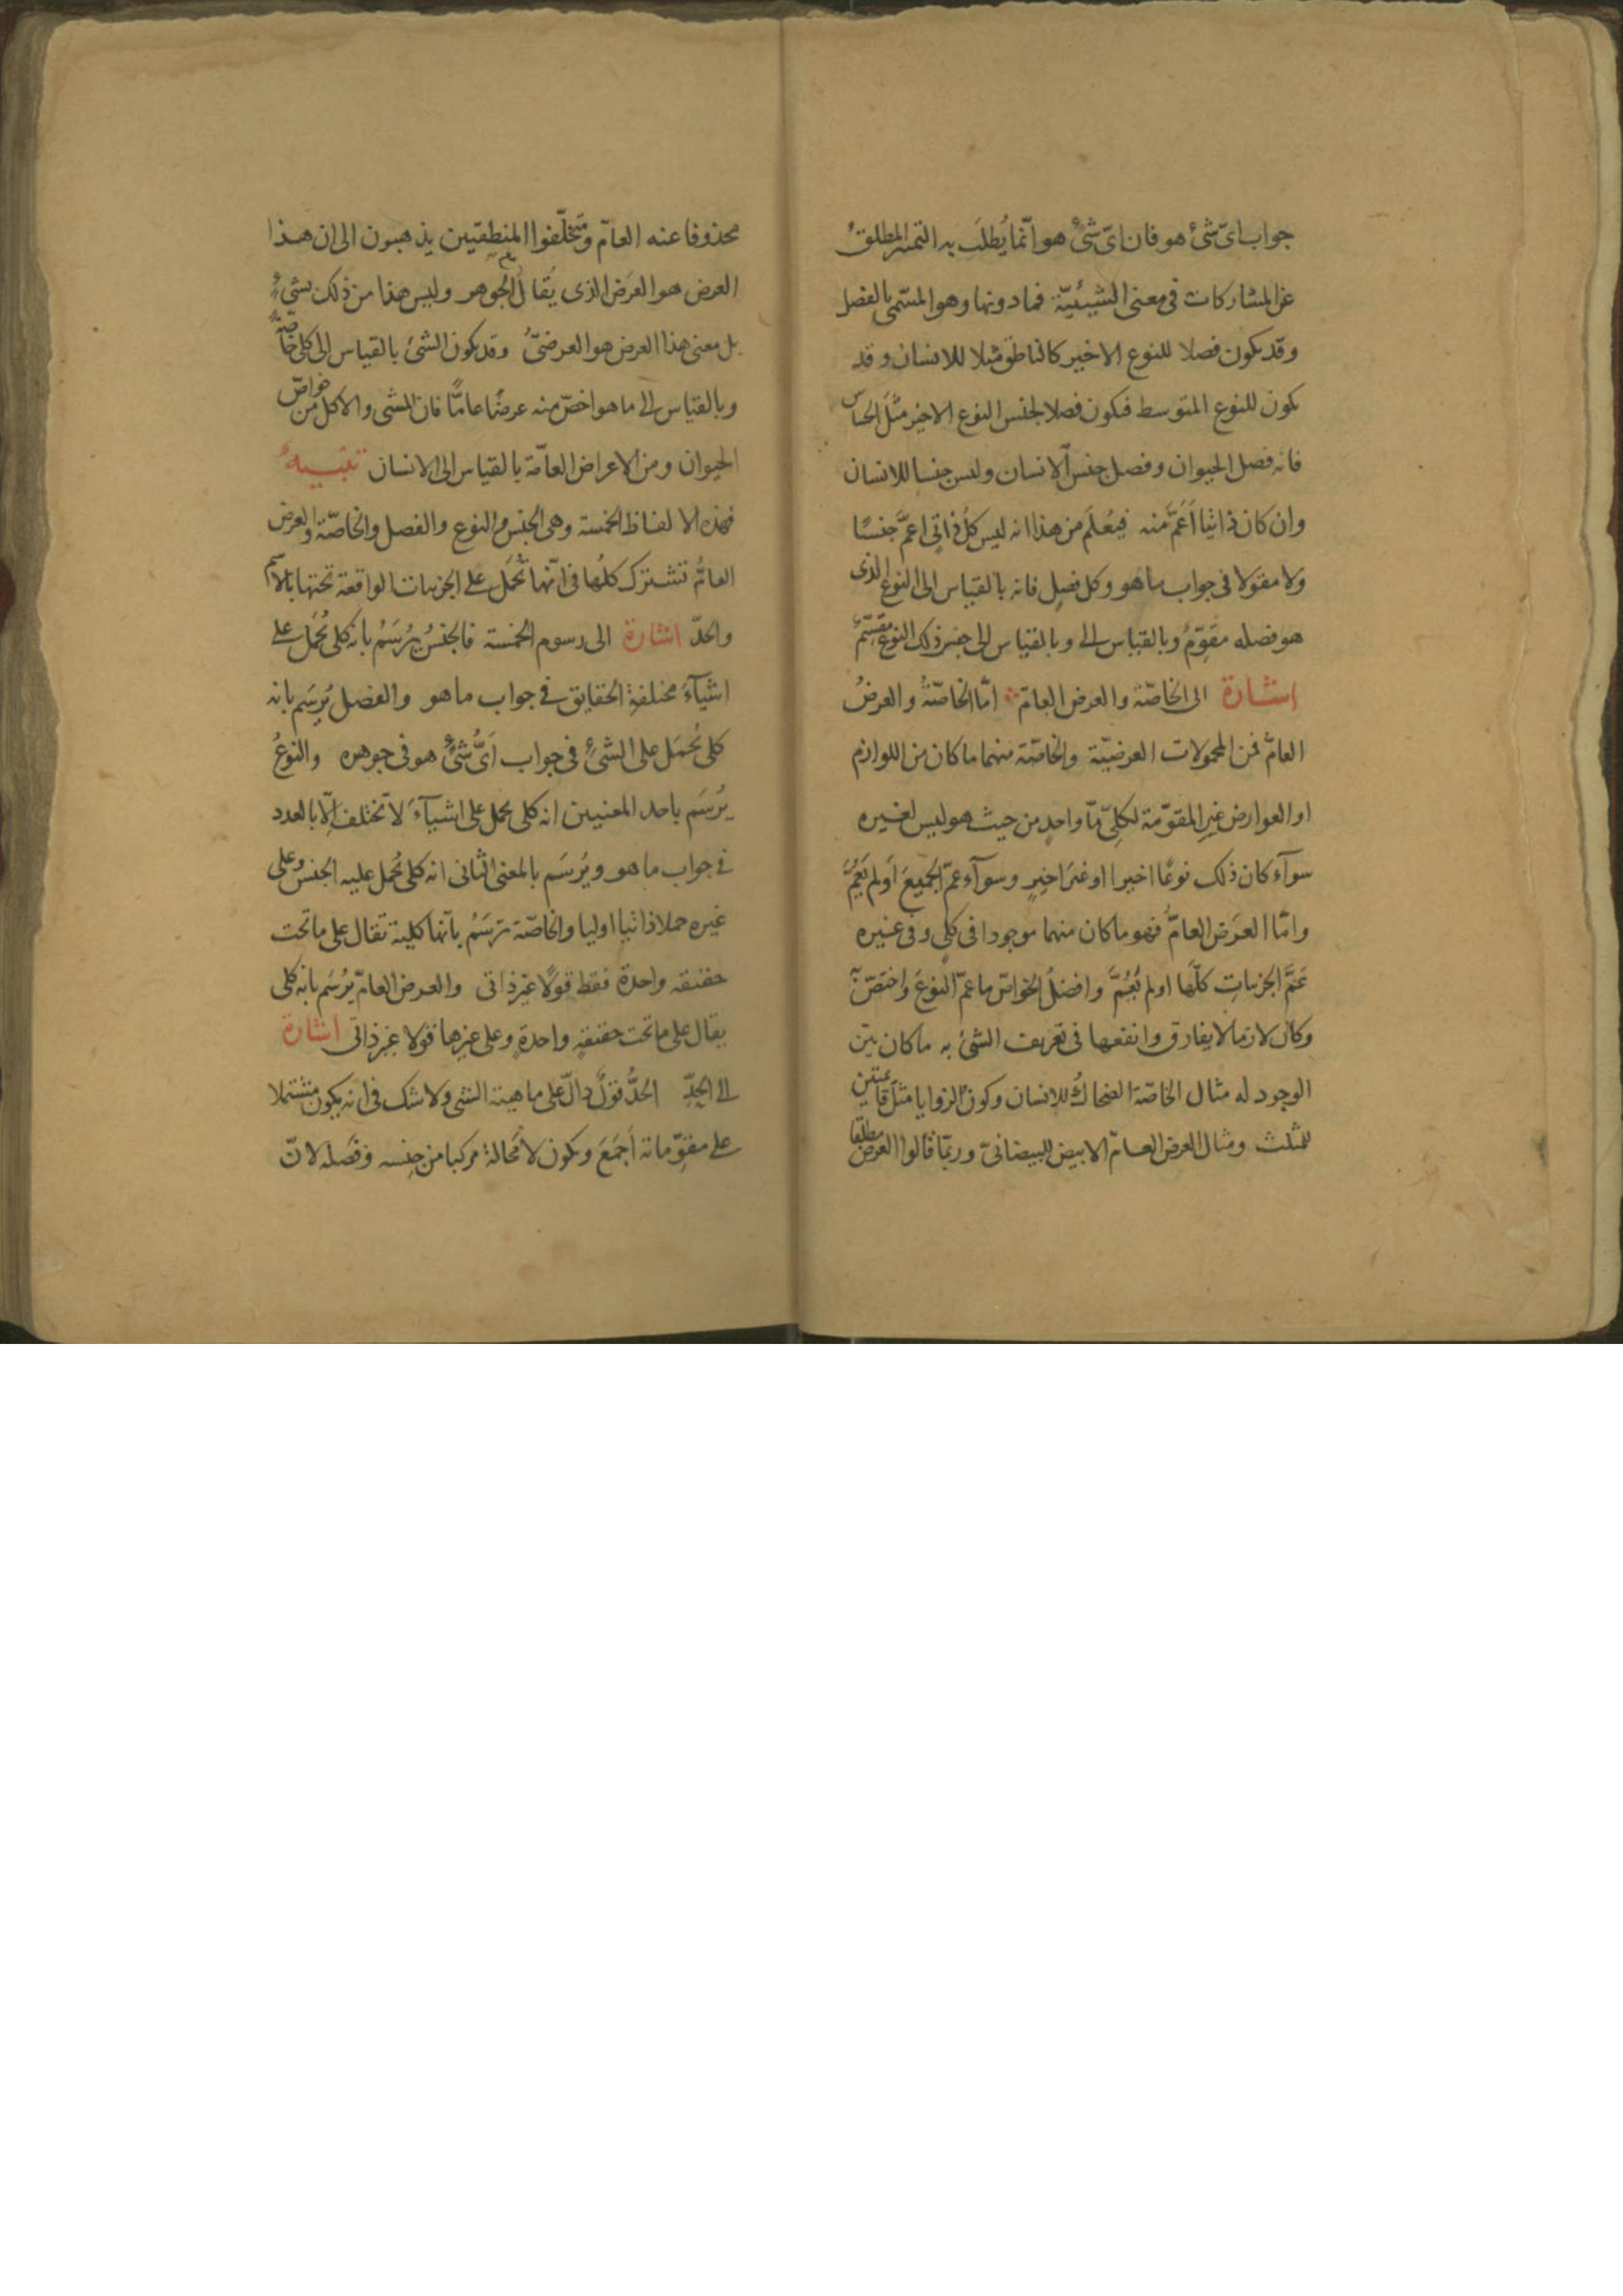 جواب اىّ شئ هو فان اىّ شئٍ هو انّما يُطلَب به التميز المطلقُ
عن المشاركات فى معنى الشيئيّة فما دونها وهو المسّمى بالفصل
وقد يكون فصلا للنوع الاخير كالناطق مثلا للانسان وقد
يكون للنوع المتوسط فيكون فصلا لجنس النوع الاخير مثل الحسّاس
فانه فصل الحيوان وفصل جنس الانسان وليس جنسا للانسان
وان كان ذاتيا أَعَمَّ منه فيُعلَم من هذا انه ليس كلُّ ذاتى اعمَّ جنسًا
ولا مقولا فى جواب ما هو وكل فصل فانه بالقياس الى النوع الذى
هو فصله مقوّمٌ وبالقياس الى وبالقياس الى جنس ذلك النوع مقسّمٌ
اشارة الى الخاصّة والعرض العامّ امّا الخاصّةُ والعرضُ
العامّ فمن المحمولات العرضيّة والخاصّة منهما ما كان من اللوازم
او العوارض غير المقوّمة لكلّىٍ مّا واحدٍ من حيث هو ليس لغيره
سوآء كان ذلك نوعًا اخيرا او غيرَ اخيرٍ وسوآء عمّ الجميعَ أولم يَعُمَّ
وامّا العَرَض العامُّ فهو ما كان منهما موجودا فى كلّى وفى غيره
عَمَّ الجزئياتِ كلَّها اولم يَعُمَّ وافضلُ الخواصّ ما عمّ النوعَ واختصّ به
وكان لازما لا يفارق وانفعها فى تعريف الشئ به ما كان بيّن
الوجود له مثال الخاصّة الضحاكُ للانسان وكون الزوايا مثلَ قائمتين
للمثلث ومثال العرض العامّ الابيض للبيضانىّ وربّما قالوا العرض مطلقا
محذوفا عنه العامّ ومُتخلّفوا المنطقيين يذهبون الى ان هذا
العرض هو العَرَض الذى يُقال مع الجوهر وليس هذا من ذلك بشئٍ
بل معنى هذا العرض هو العرضىُّ وقد يكون الشئ بالقياس الى كلى خاصّةً
وبالقياس الى ما هو اخصّ منه عرضًا عامًّا فان المشى والاكل من خواصّ
الحيوان ومن الاعراض العامّة بالقياس الى الانسان تنبيهٌ
فهذه الالفاظ الخمسة وهى الجنس والنوع والفصل والخاصّة والعرض
العامُّ تشترك كلُّها فى انّها تُحمَل على الجزئيات الواقعة تحتها بالاسم
والحدّ اشارة الى رسوم الخمسة فالجنسُ يُرسَمُ بانه كلى يُحمَل على
اشيآءَ مختلفةِ الحقايق فى جواب ما هو والفصل يُرسَم بانه
كلى يُحمَل على الشئِ فى جواب أَىُّ شئٍ هو فى جوهره والنوعُ
يُرسَم باحد المعنيين انه كلى يحمل على اشيآءَ لا تختلف الّا بالعدد
فى جواب ما هو ويُرسَم بالمعنى الثانى انه كلى يُحمل عليه الجنس وعلى
غيره حملا ذاتيا اوليا والخاصّة تُرسَمُ بأنّها كلية تقال على ما تحت
حقيقة واحدة فقط قولًا غيرَ ذاتى والعرض العامّ يُرسَم بانه كلى
يقال على ما تحت حقيقةٍ واحدةٍ وعلى غيرها قولا غير ذاتى اشارة
الى الحدِّ الحدُّ قولٌ دالٌّ على ماهية الشئ ولا شك فى انه يكون مشتملا
على مقوّماته أجمَعَ ويكون لا مَحالة مركبا من جنسه وفصله لانّ